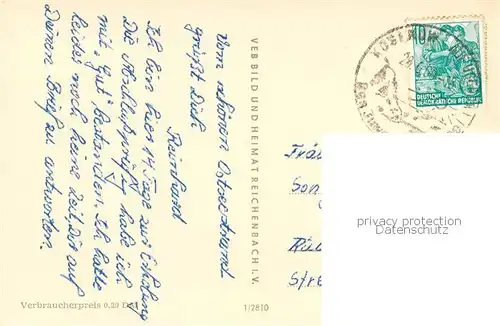 Vom schönen Ostseestrand
grüßt Dich
Reinhard
Ich bin hier 14 Tage zur Erholung
Die Abschlußprüfung habe ich
mit „Gut" bestanden. Ich hatte
leider noch keine Zeit, Dir auf
Deinen Brief zu antworten.
VEB BILD UND HEIMAT REICHENBACH I. V.
Verbraucherpreis 0,20 DM
1/2810
DEUTSCHE
DEMOKRATISCHE REPUBLIK
Fräu
Son
Stre
privacy protection
Datenschutz